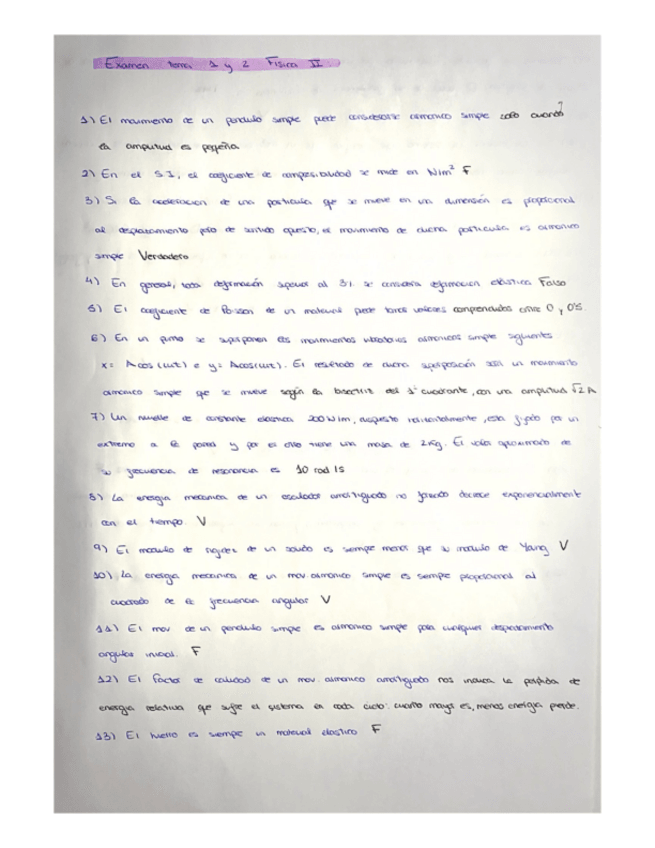 Examen tema 1 y 2 Física II
1) El movimiento de un pendulo simple puede considerarse armonico simple solo cuando
la amplitud es pequeña
2) En el S.I, el coeficiente de compresibilidad se mide en N/m² F
3) Si la aceleracion de una particula que se mueve en una dimensión es proporcional
al desplazamiento pero de sentido opuesto, el movimiento de dicha particula es armonico
simple Verdadero
4) En general, toda deformación superior al 3% se considera deformacion elástica Falso
5) El coeficiente de Poisson de un material puede tomar valores comprendidos entre 0 y 0'5
6) En un punto se superponen los movimientos vibratorios armonicos simple siguientes
x = A cos (wt) e y = A cos (wt). El resultado de dicha superposición será un movimiento
armonico simple que se mueve según la bisectriz del 1º cuadrante, con una amplitud √2 A
7) Un muelle de constante elastica 200 N/m, dispuesto horizontalmente, esta fijado por un
extremo a la pared y por el otro tiene una masa de 2Kg. El valor aproximado de
su frecuencia de resonancia es 10 rad/s
8) La energia mecanica de un oscilador amortiguado no forzado decrece exponencialmente
con el tiempo. V
9) El modulo de rigidez de un solido es siempre menor que su modulo de Young V
10) La energia mecanica de un mov. armonico simple es siempre proporcional al
cuadrado de la frecuencia angular V
11) El mov de un pendulo simple es armonico simple para cualquier desplazamiento
angular inicial. F
12) El factor de calidad de un mov. armonico amortiguado nos indica la perdida de
energia relativa que sufre el sistema en cada ciclo: cuanto mayor es, menos energia pierde.
13) El hierro es siempre un material elastico F